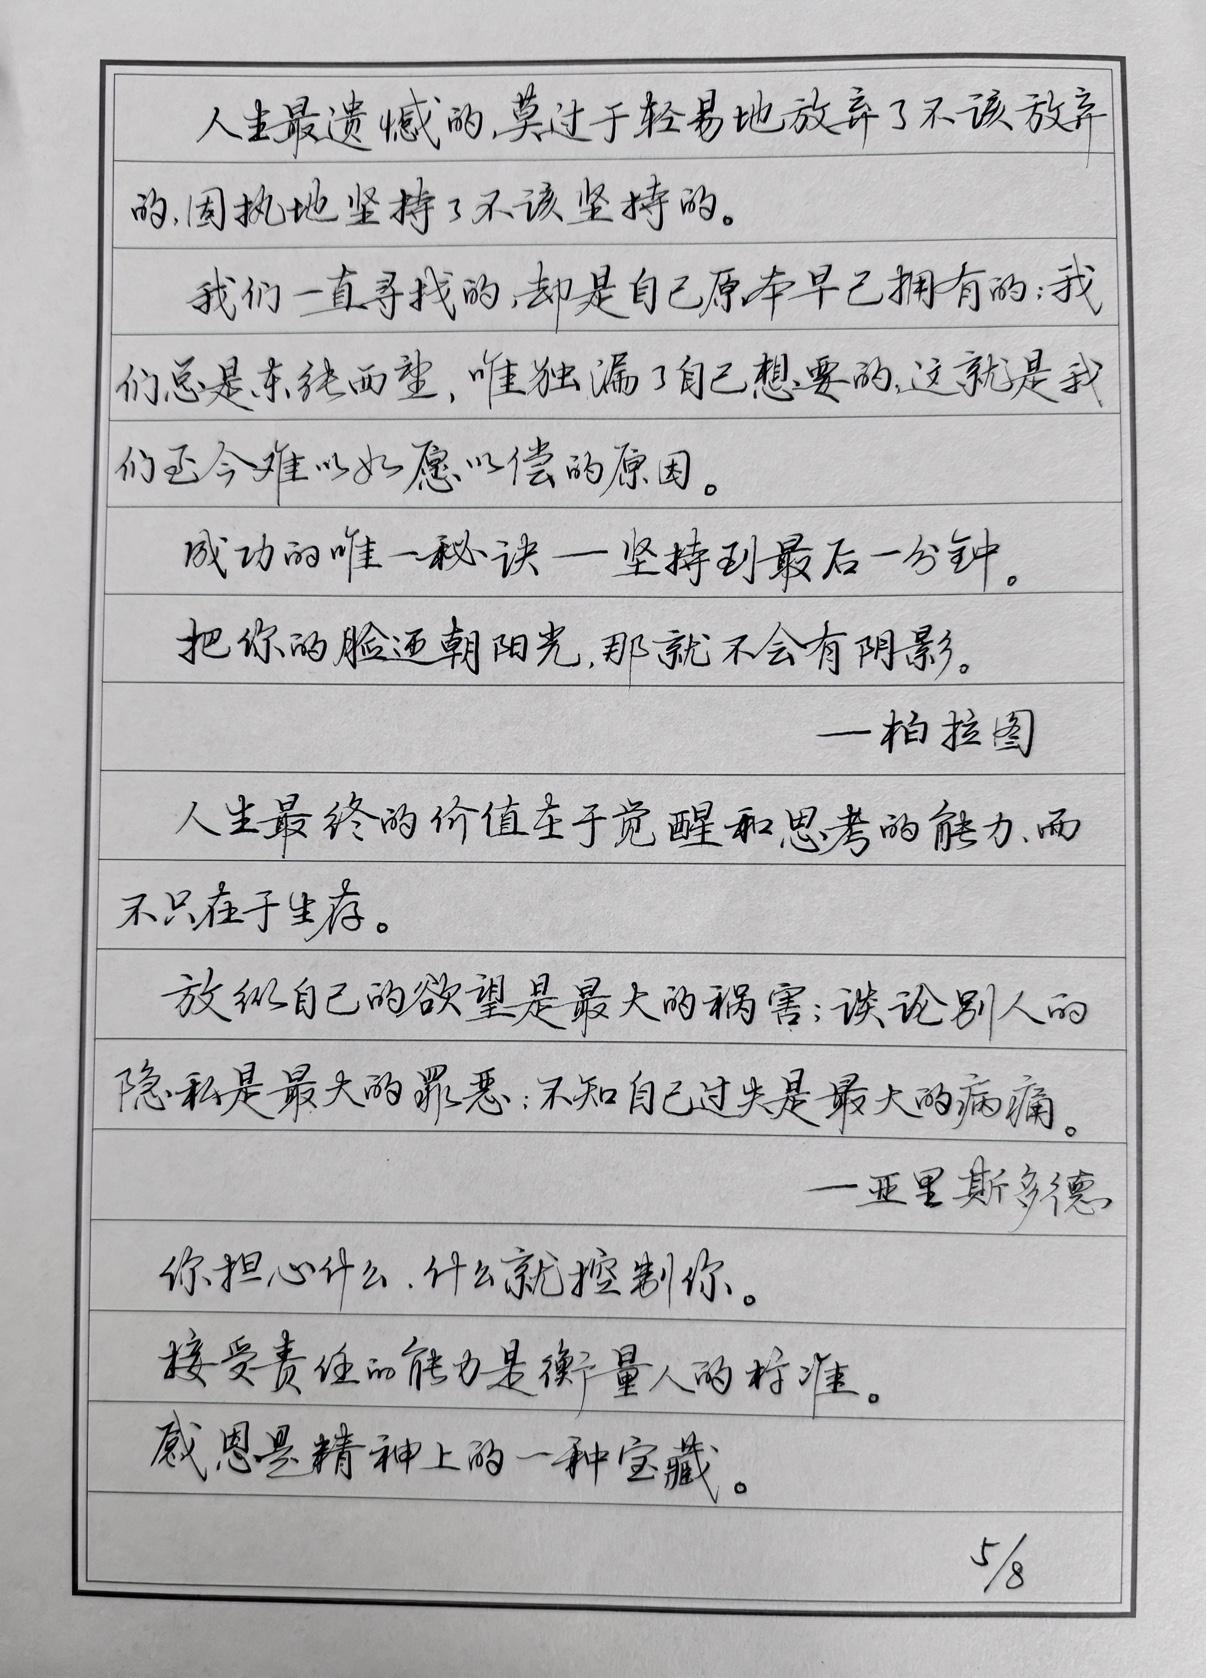 人生最遗憾的,莫过于轻易地放弃了不该放弃
的,固执地坚持了不该坚持的。
我们一直寻找的,却是自己原本早已拥有的;我
们总是东张西望,唯独漏了自己想要的,这就是我
们至今难以如愿以偿的原因。
成功的唯一秘诀—坚持到最后一分钟。
把你的脸迎朝阳光,那就不会有阴影。
—柏拉图
人生最终的价值在于觉醒和思考的能力、而
不只在于生存。
放纵自己的欲望是最大的祸害;谈论别人的
隐私是最大的罪恶;不知自己过失是最大的病痛。
—亚里斯多德
你担心什么,什么就控制你。
接受责任的能力是衡量人的标准。
感恩是精神上的一种宝藏。
5/8